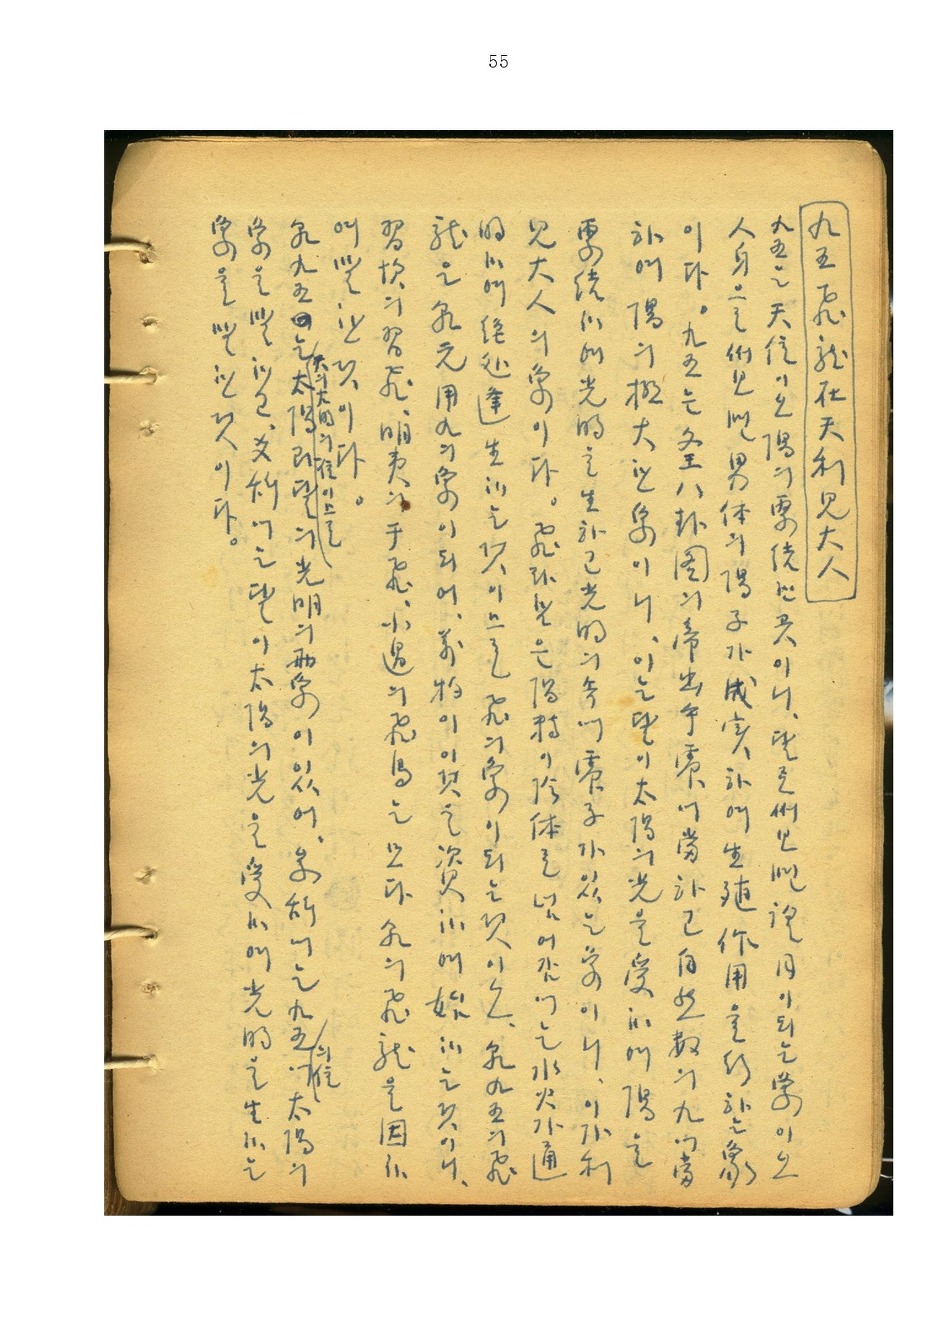 55
九五飛龍在天利見大人
九五는 天位이오 陽의 要繞한곳이니, 달로써보면 望月이되는 象이오
人身으로써보면 男体의 陽子가 成実하며 生殖作用을 行하는象
이다. 九五는 文王八卦图의 帝出乎震에 當하고 自然数의 九에當
하며 陽의 極大한象이니, 이는달이 太陽의 光을 受하며 陽을
하며 光明을 生하고 光明의 속에 震子가 있는 象이니, 이가 利
見大人의 象이다. 飛라함은 陽精이 陰体로 넘어감에는 水火가 通
明하며 絶処逢生하는 것이므로 飛의 象이되는것이오, 乾九五의 飛
龍은 乾元用九의 象이되어, 萬物이 이것을 資하야 始하는것이니,
習坎의 習飛, 明夷의 于飛, 小過의 飛鳥는 모다 乾의 飛龍을 因하
며 말한것이다.
乾九五에는 太陽과달의 光明의 両象이 있어, 象辞에는 九五에 太陽의
天의大明의位이므로
의位
象을 말하고, 爻辞에는 달이 太陽의 光을 受하며 光明을 生하는
象을 말한것이다.